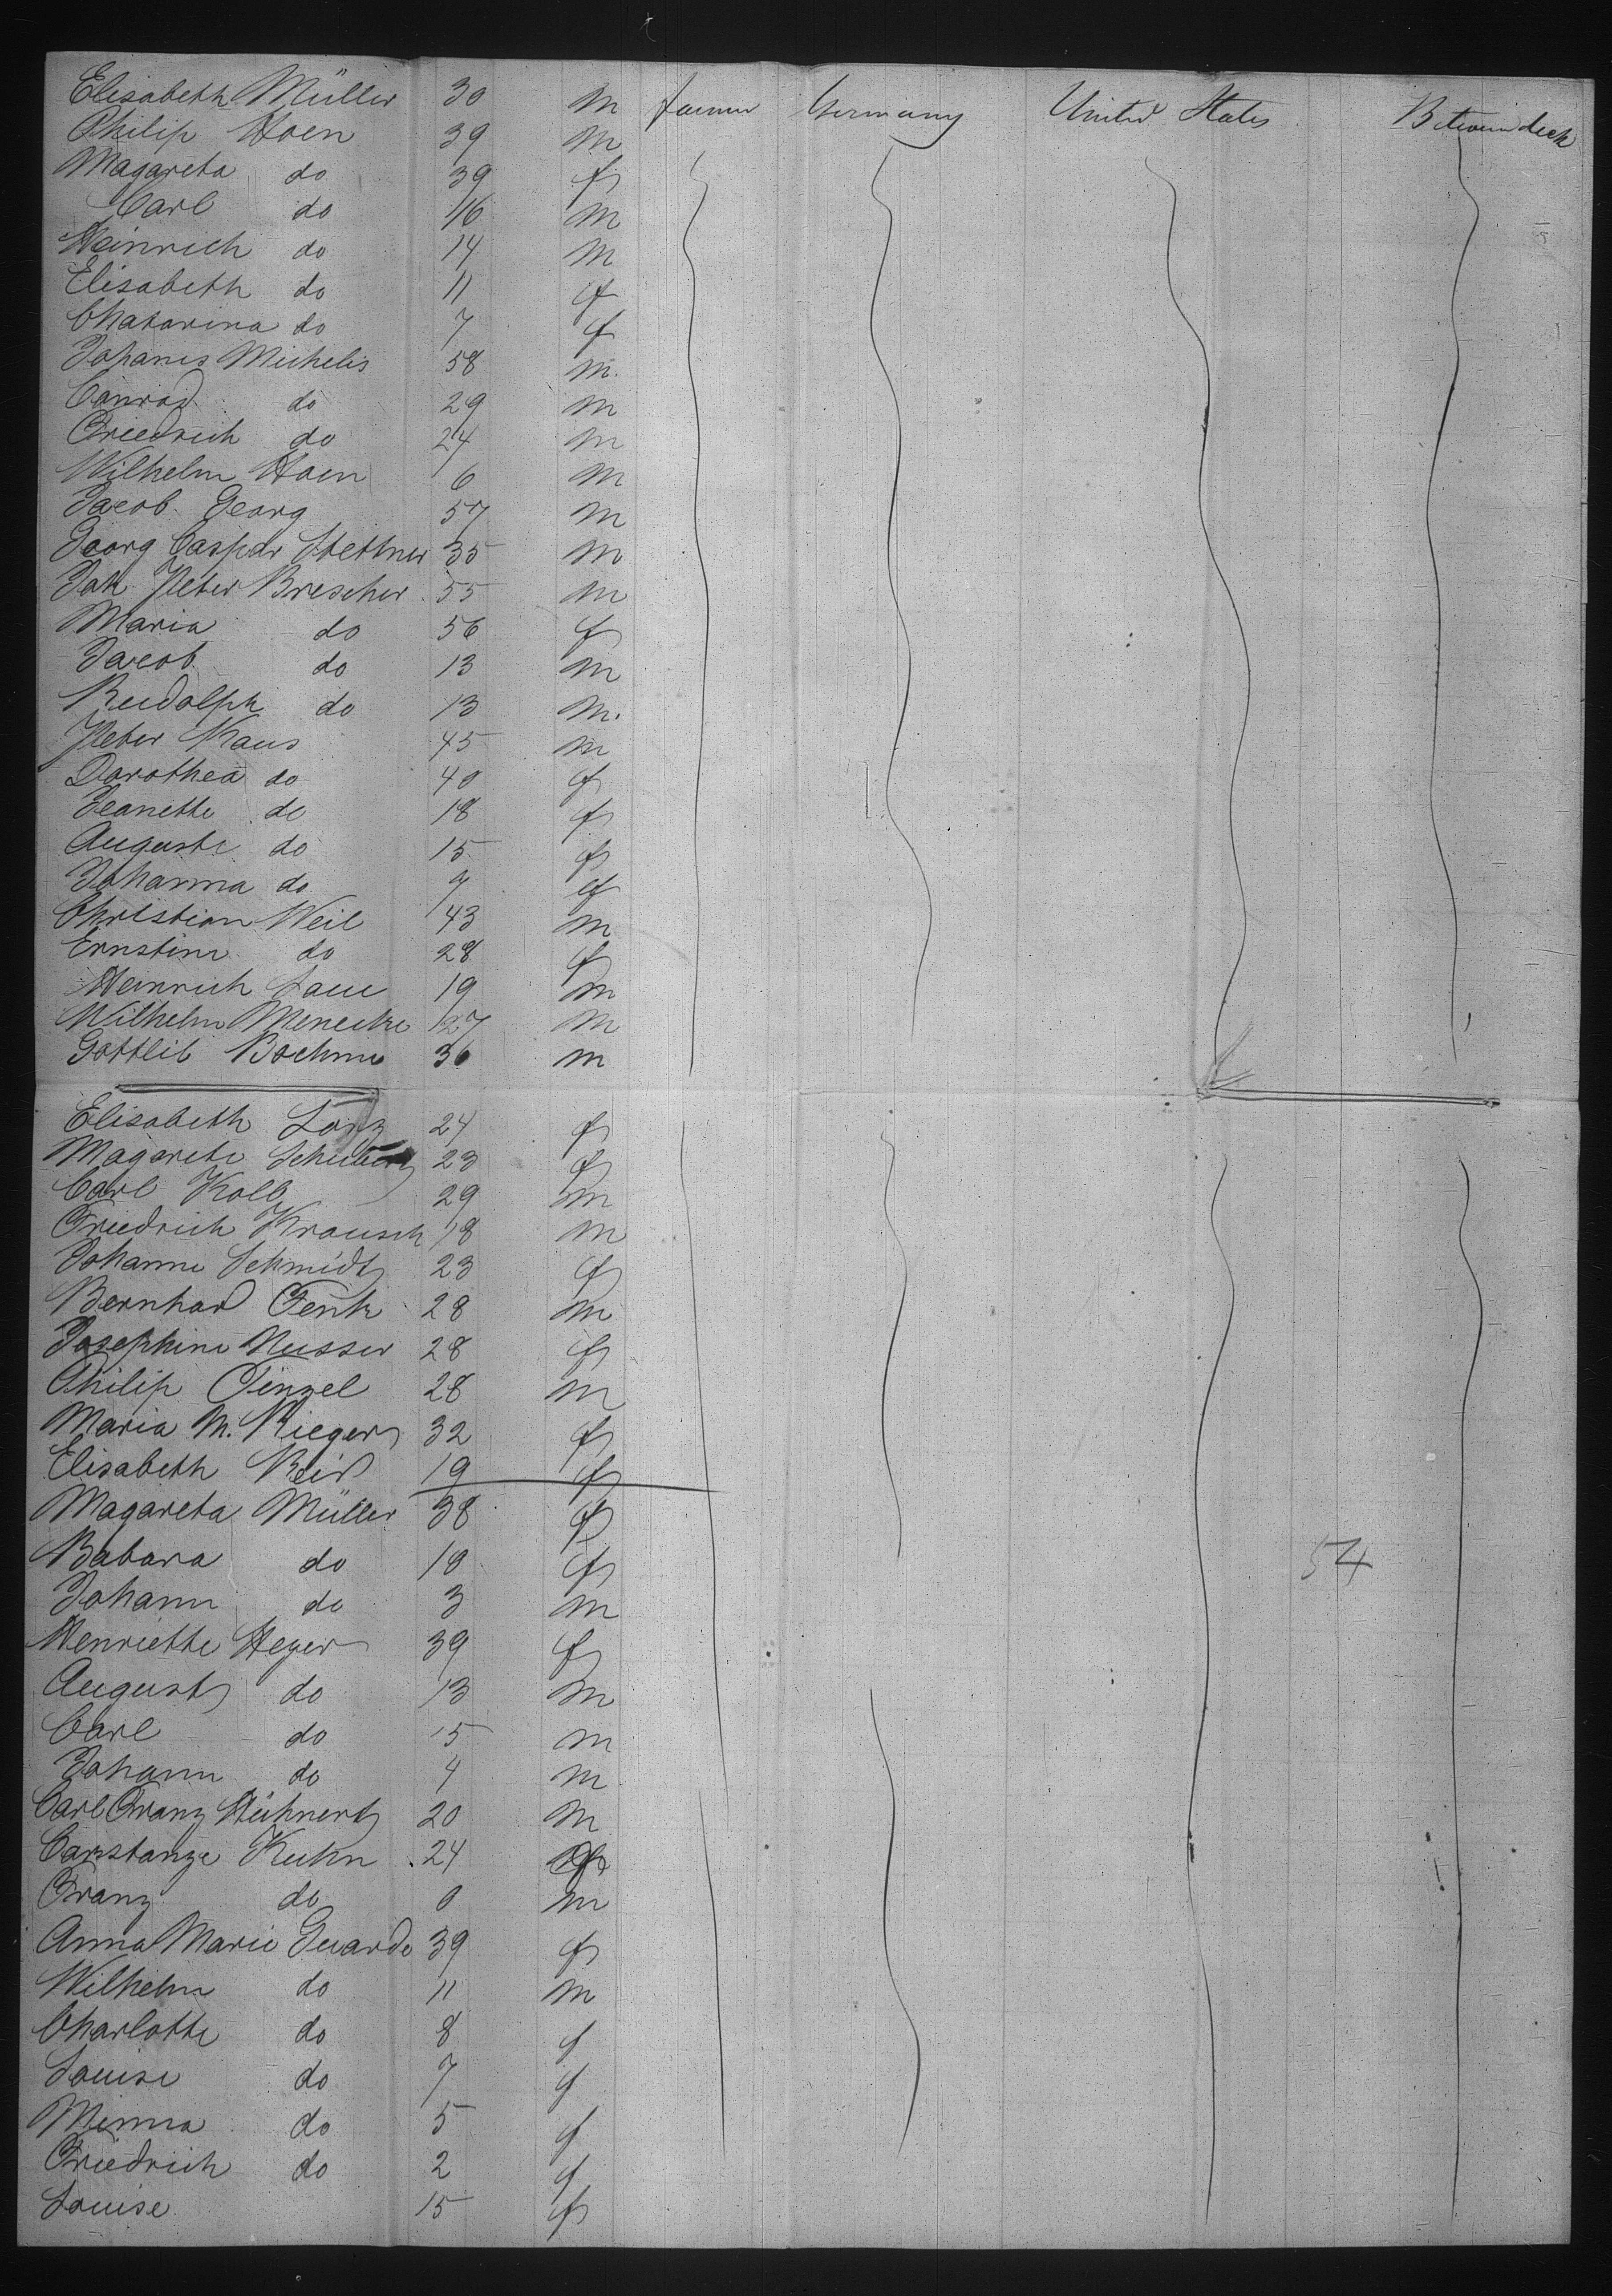 Elisabeth Müller 30 m farmer Germany United States Between deck
Philip Hoen 39 m
Magareta do 39 f
Carl do 16 m
Heinrich do 14 m
Elisabeth do 11 f
Chatarina do 7 f
Johanes Michelis 58 m.
Conrad do 29 m
Friedrich do 24 m
Wilhelm Hoen 6 m
Jacob Georg 57 m
Georg Caspar Stettner 35 m
Joh Peter Brescher 55 m
Maria do 56 f
Jacob do 13 m
Rudolph do 13 m.
Peter Kaus 45 m
Dorothea do 40 f
Jeanette do 18 f
Auguste do 15 f
Johanna do 7 f
Christian Weil 43 m
Ernstine do 28 f
Heinrich Laue 19 m
Wilhelm Menecke 27 m
Gottlib Boehme 36 m
Elisabeth Lorz 24 f
Magarete 23 f
Carl Kolb 29 m
Friedrich Krausch 18 m
Johanne Schmidt 23 f
Bernhard Fenk 28 m
Josephine Nusser 28 f
Philip Finzel 28 m
Maria M. Rieger 32 f
Elisabeth 19 f
Magareta Müller 38 f
Babara do 18 f
54
Johann do 3 m
Henriette Heyer 39 f
August do 13 m
Carl do 15 m
Johann do 4 m
Carl Franz Hühnert 20 m
Constanze Kuhn 24 f
Franz do 0 m
Anna Marie 39 f
Wilhelm do 11 m
Charlotte do 8 f
Louise do 7 f
Minna do 5 f
Friedrich do 2 f
Louise 15 f